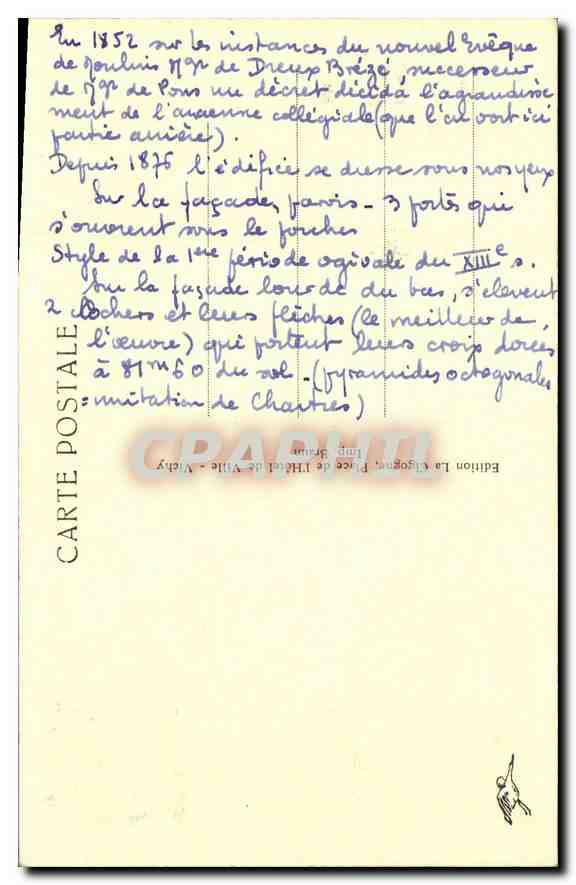 En 1852 sur les instances du nouvel Evêque
de Moulins Mgr de Dreux Brézé, successeur
de Mgr de Pons un décret décida l'agrandisse
ment de l'ancienne collégiale (que l'on voit ici
partie arrière).
Depuis 1876 l'édifice se dresse sous nos yeux
Sur la façade, parvis - 3 portes qui
s'ouvrent sous le porche
Style de la 1ère période ogivale du XIIIe s.
Sur la façade lourde du bas, s'élèvent
2 clochers et leurs flèches (le meilleur de
l'œuvre) qui portent leurs croix dorées
à 81m60 du sol - (pyramides octogonales
= imitation de Chartres)
CARTE POSTALE
Edition La Cigogne, Place de l'Hôtel de Ville - Vichy
Imp. Braun
CPAPHIL